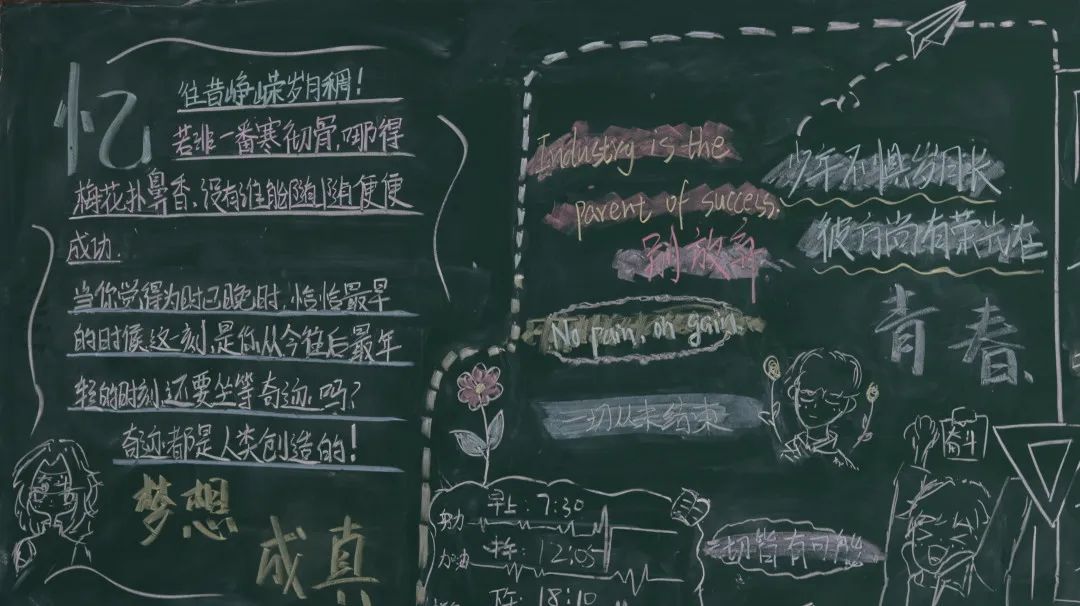 忆
往昔峥嵘岁月稠！
若非一番寒彻骨，哪得
梅花扑鼻香，没有谁能随随便便
成功．
当你觉得为时已晚时，恰恰最早
的时候这一刻，是你从今往后最年
轻的时刻，还要坐等奇迹，吗？
奇迹都是人类创造的！
梦想
成真
Industry is the
parent of success.
别放弃
No pain, on gain.
一切从未结束
少年不惧岁月长
彼方尚有荣光在
青春
奋斗
努力
早上：7:30
加油
12:05
18:10
一切皆有可能